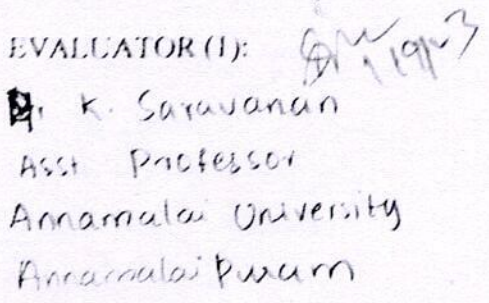 EVALUATOR (1):
Dr. K. Saravanan
Asst Professor
Annamalai University
Annamalai Puram